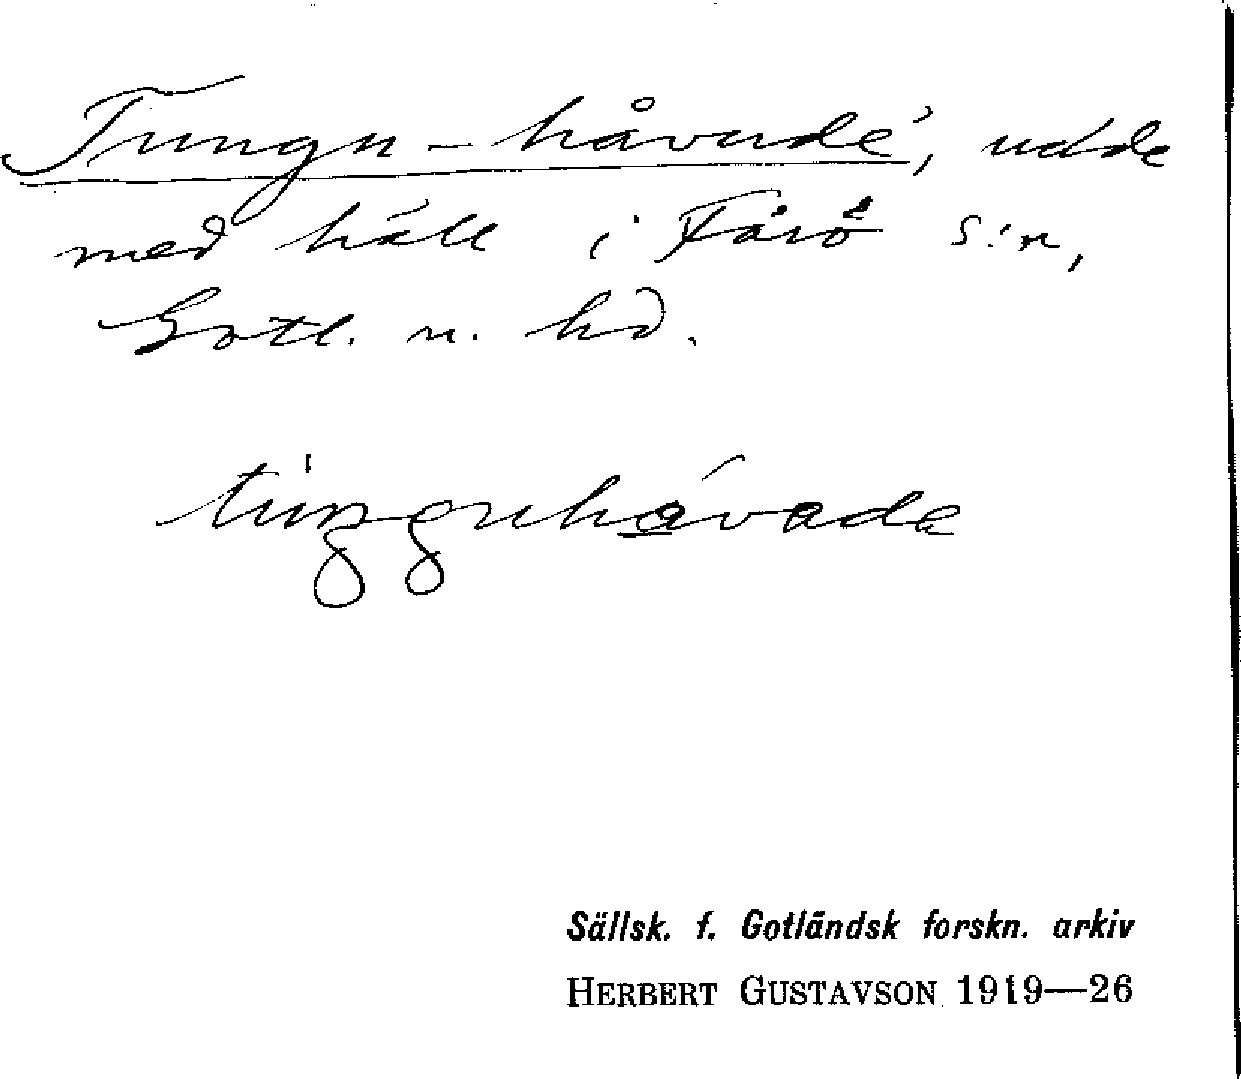 Tungu-håvude', udde
med häll i Fårö s:n,
Gotl. n. hd.
tungguhávade
Sällsk. f. Gotländsk forskn. arkiv
HERBERT GUSTAVSON 1919—26